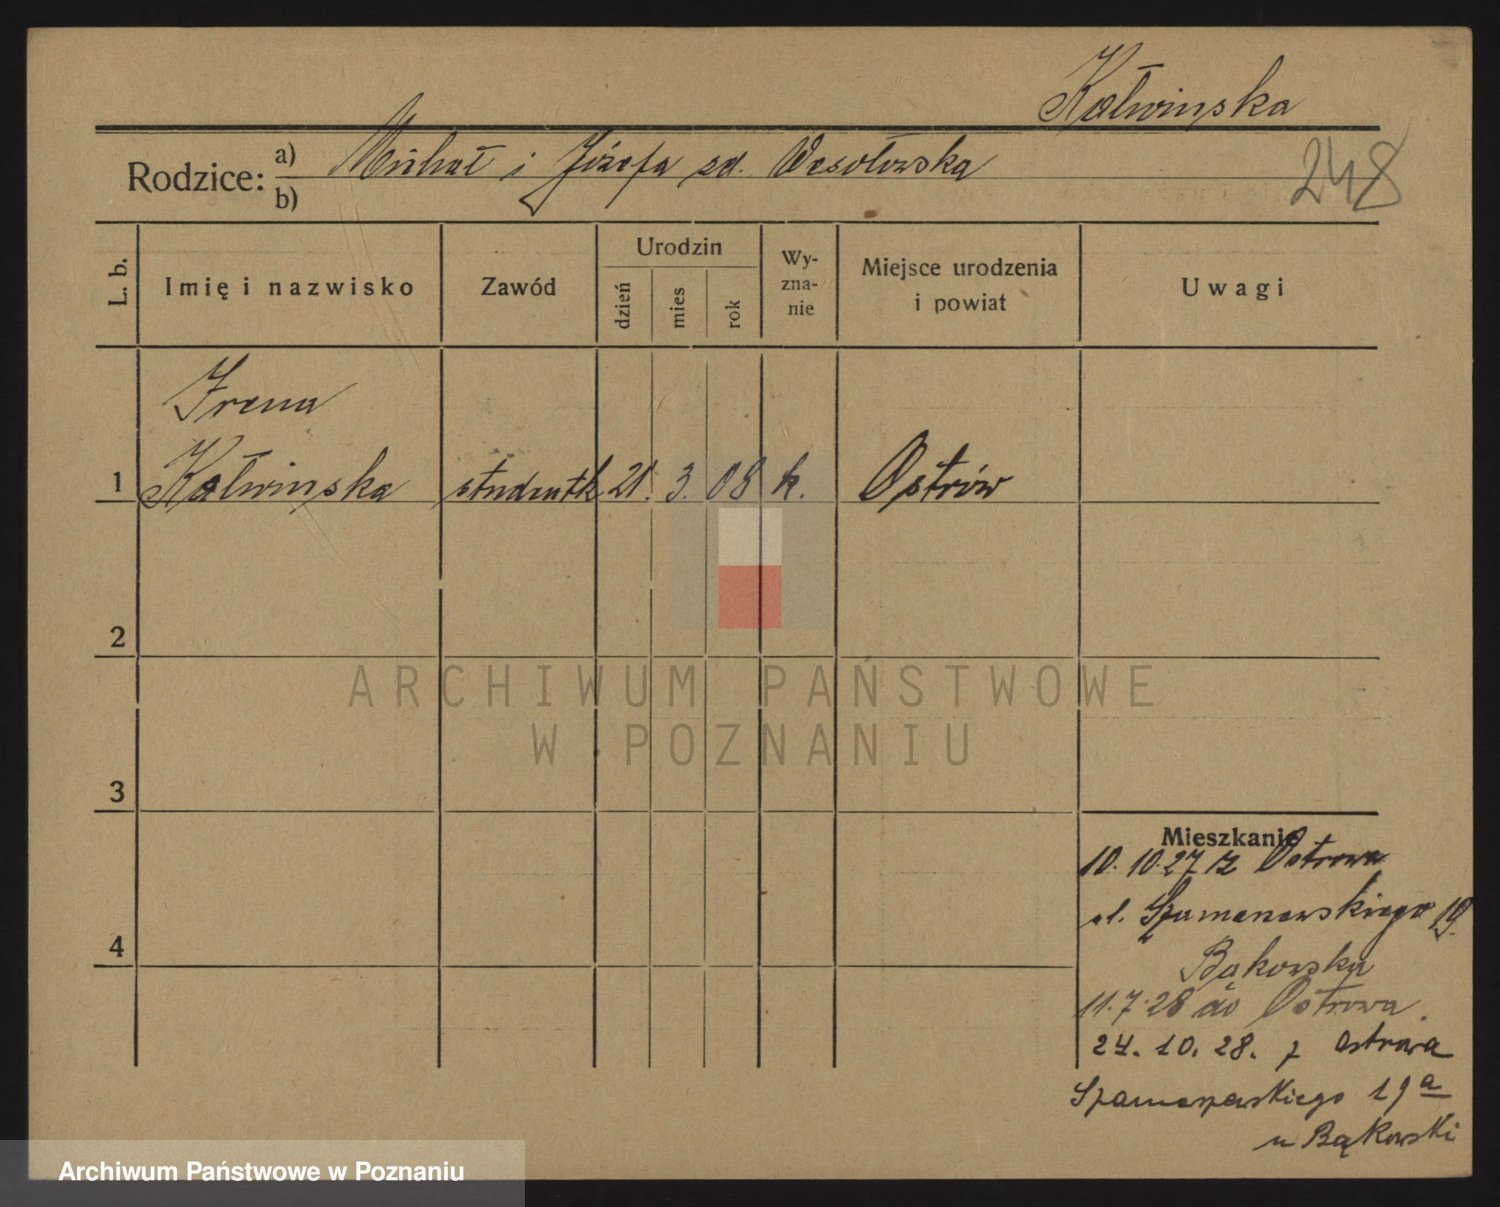 Kałwinska
Rodzice: a) Michał i Józefa zd. Wesołowska
b)
248
L. b.
Imię i nazwisko
Zawód
Urodzin
dzień
mies
rok
Wy-
zna-
nie
Miejsce urodzenia
i powiat
Uwagi
Irena
1 Kałwinska studentk 21. 3. 08 k. Ostrów
2
3
4
ARCHIWUM PAŃSTWOWE
W POZNANIU
Mieszkanie
10. 10. 27 z Ostrowa
ul. Szamarzewskiego 19.
Bąkowska
11.7.28 do Ostrowa.
24. 10. 28. z Ostrowa
Szamarzewskiego 19a
u Bąkowski
Archiwum Państwowe w Poznaniu